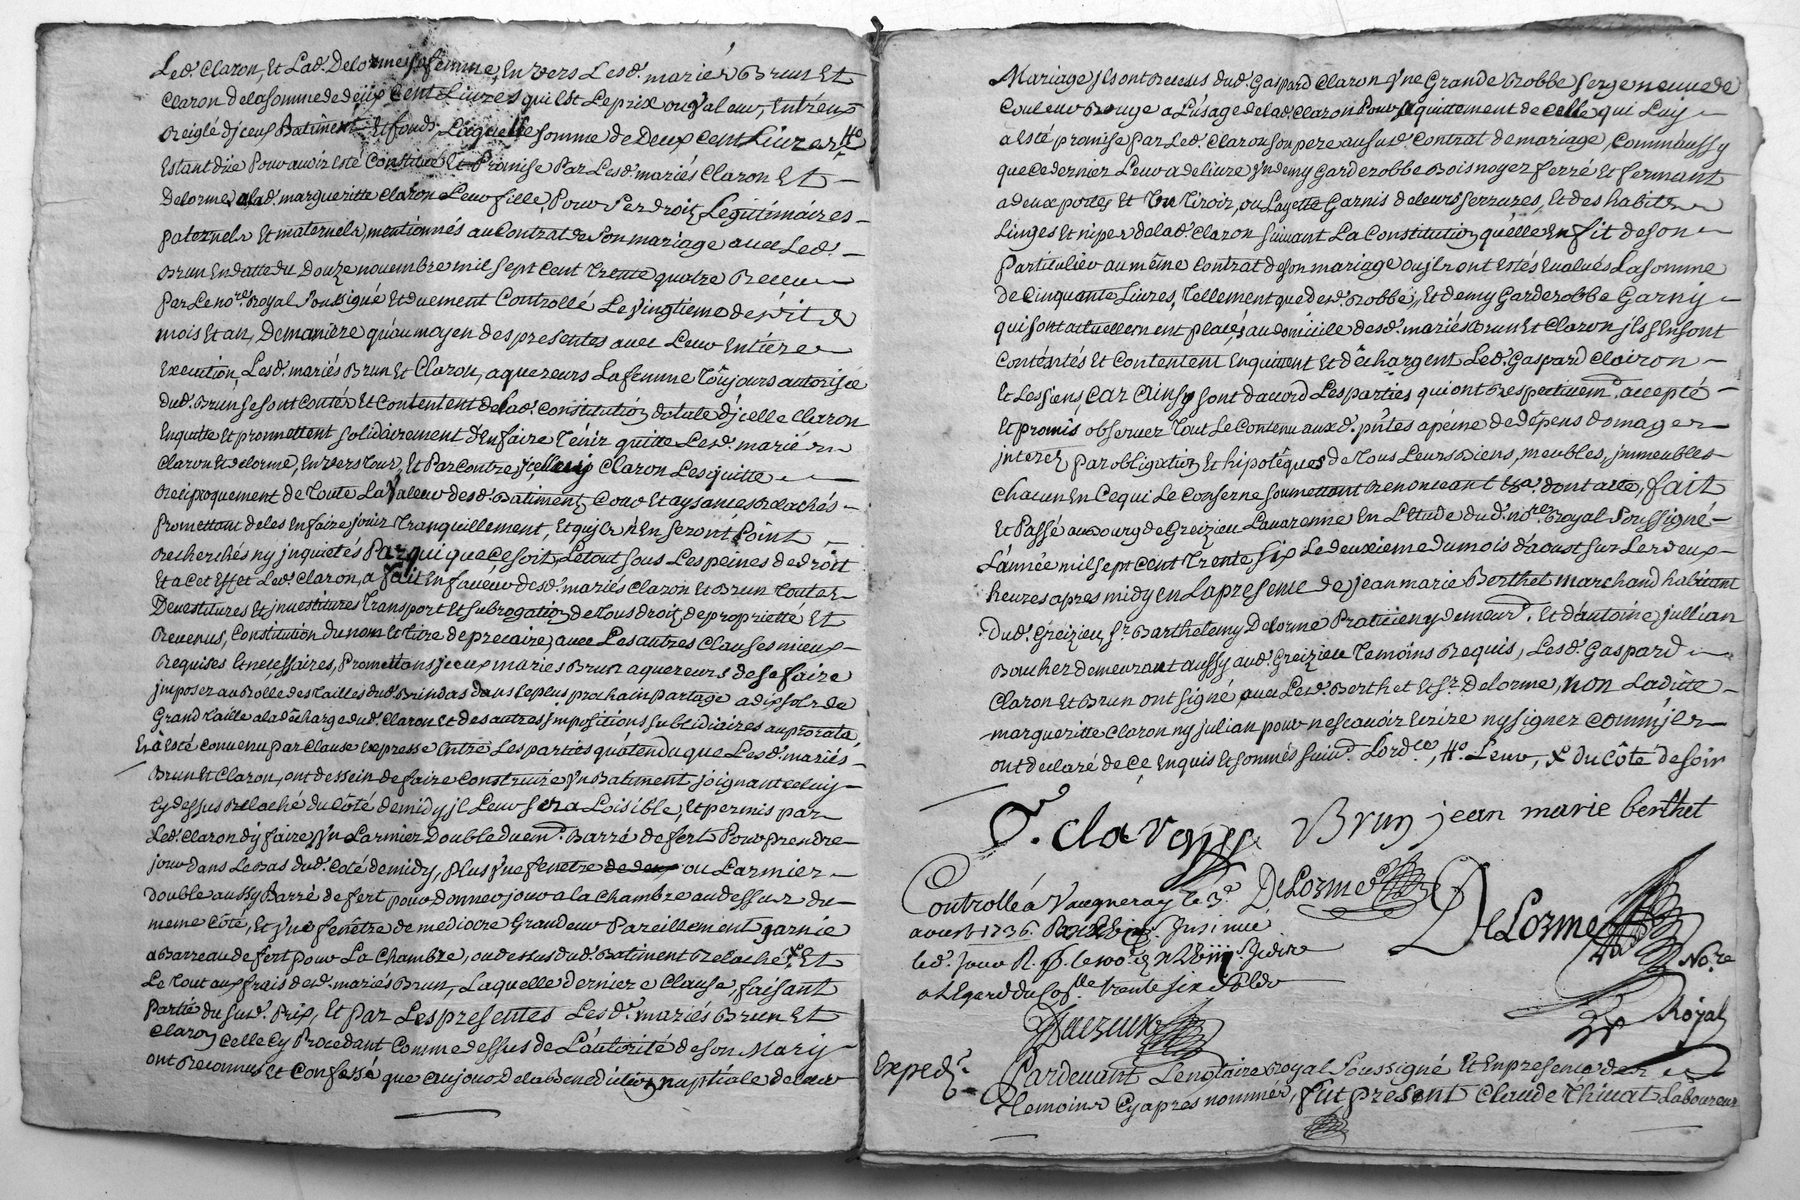 Led. Claron, Et Lad. Delorme sa femme, Envers Lesd. mariés Brun Et
Claron delasomme de deux Cent Livres qui Est Le prix ou Valeur, Entreux
Reiglé d'jceux Batiment Et fonds, Laquelle somme de Deux Cent Livres #
Estant dite Pour avoir Esté Constitué Et Promise Par Lesd. mariés Claron Et
Delorme alad. margueritte Claron Leur fille, Pour Ses droits Legitimaires
paternels Et maternels, mentionnés au Contrat de Son mariage avec Led.
Brun En datte du Douze novembre mil sept Cent Trente quatre Receu
Par Le nore. Royal Soussigné Et duement Controllé Le Vingtieme desdit
mois Et an, De maniere qu'au moyen des presentes avec Leur Entiere
Execution, Lesd. mariés Brun Et Claron, aquereurs La femme Toujours autorisée
dud. Brun se sont Contés Et Contentent de Lad. Constitution dotale d'jcelle Claron
Enquitte Et promettent solidairement d'En faire Tenir quitte Lesd. mariés
Claron Et Delorme, Envers Tous, Et Par Contre, Claron Les quitte
Reciproquement de Toute La Valeur desd. Batiment, Cour Et aysances Relachés
Promettant de les En faire jouir Tranquillement, Et qu'jls n'En seront Point
Recherchés ny jnquietés Par qui que Ce soit, Le tout sous Les peines de droit
Et a Cet Effet Led. Claron, a fait En faveur desd. mariés Claron Et Brun Toutes
Devestitures Et jnvestitures Transport Et subrogation de Tous droits de proprietté Et
Revenus, Constitution du nom Et titre de precaire, avec Les autres Clauses mieux
Requises Et necessaires, Promettans jceux mariés Brun aquereurs de se faire
jmposer au Rolle des Tailles dud. Brindas dans le plus prochain partage a dix sols de
Grand Taille a la décharge dud. Claron Et des autres jmpositions subsidiaires au prorata,
Et a Esté Convenu par Clause Expresse Entre Les parties qu'atendu que Lesd. mariés
Brun Et Claron, ont dessein de faire Construire Un Batiment joignant Celuy
Cy dessus Relaché du Coté de midy, jl Leur sera Loisible, Et permis par
Led. Claron d'y faire Un Larmier Double duem. Barré de fert Pour prendre
jour dans Le Bas dud. Coté de midy, plus Une fenetre ou Larmier
double aussy Barré de fert pour donner jour a la Chambre au dessus du
meme Coté, Et Une fenêtre de mediocre Grandeur Pareillement garnie
a Barreau de fert pour La Chambre, au dessus dud. Batiment Relaché, Et
Le Tout aux frais desd. mariés Brun, Laquelle derniere Clause, faisant
Partie du sud. Prix, Et Par Les presentes Lesd. mariés Brun Et
Claron Celle Cy Procedant Comme dessus de L'autorité de son Mary
ont Reconnu Et Confessé que au jour de la Benediction nuptiale de leur
Mariage jls ont Receus dud. Gaspard Claron Une Grande Robbe serge neuve de
Couleur Rouge a L'usage de lad. Claron Pour aquittement de Celle qui Luy
a Esté promise par Led. Claron son pere au sud. Contrat de mariage, Comm'aussy
que Ce dernier Leur a delivré Un demy Garderobbe Bois noyer ferré Et fermant
a deux portes Et Un Tiroir, ou Layette Garnis de leurs serrures, Et des habits
Linges Et nipes de lad. Claron suivant La Constitution qu'elle En fit de son
particulier au même Contrat de son mariage ou jls ont Estés Evalués La somme
de Cinquante Livres, Tellement que desd. Robbe, Et demy Garderobbe Garny
qui sont actuellement placés au domicille desd. mariés Brun Et Claron jls s'En sont
Contentés Et Contentent Enquittent Et déchargent Led. Gaspard Clairon
Et Les siens, Car Ainsy sont d'acord Les parties qui ont Respectivem. accepté
Et promis observer Tout Le Contenu aux d. pntes a peine de depens domages
jnterez par obligation Et hipotèques de Tous Leurs Biens, meubles, jmmeubles
Chacun En Ce qui Le Conserne soumettant Renonceant &a. dont acte, fait
Et Passé au Bourg de Greizieu Lavarenne En L'Etude dud. nore Royal Soussigné
L'année mil sept Cent Trente six Le deuxieme du mois d'aoust sur Les deux
heures apres midy En La presence de jean marie Berthet marchand habitant
dud. Greizieu, Sr. Barthelemy Delorme Praticien y demeurt. Et d'antoine jullian
Boucher demeurant aussy aud. Greizieu Temoins Requis, Lesd. Gaspard
Claron Et Brun ont signé avec Lesd. Berthet Et Sr. Delorme, non Laditte
margueritte Claron ny julian pour ne sçavoir Ecrire ny signer Comm'jls
ont declaré de Ce Enquis Et sommés suivt. Lordce, #. Leur, X du Côté de soir
G. claron Brun jean marie berthet
Controllé à Vaugneray le 3e. DeLorme
aoust 1736. Insinué
led. jour
a L'Egard du trente six
DeLorme
No.re
Royal
Exped.
Pardevant Le notaire Royal Soussigné Et En presence des
Temoins Cy apres nommés, fut present Claude Thivat Laboureur